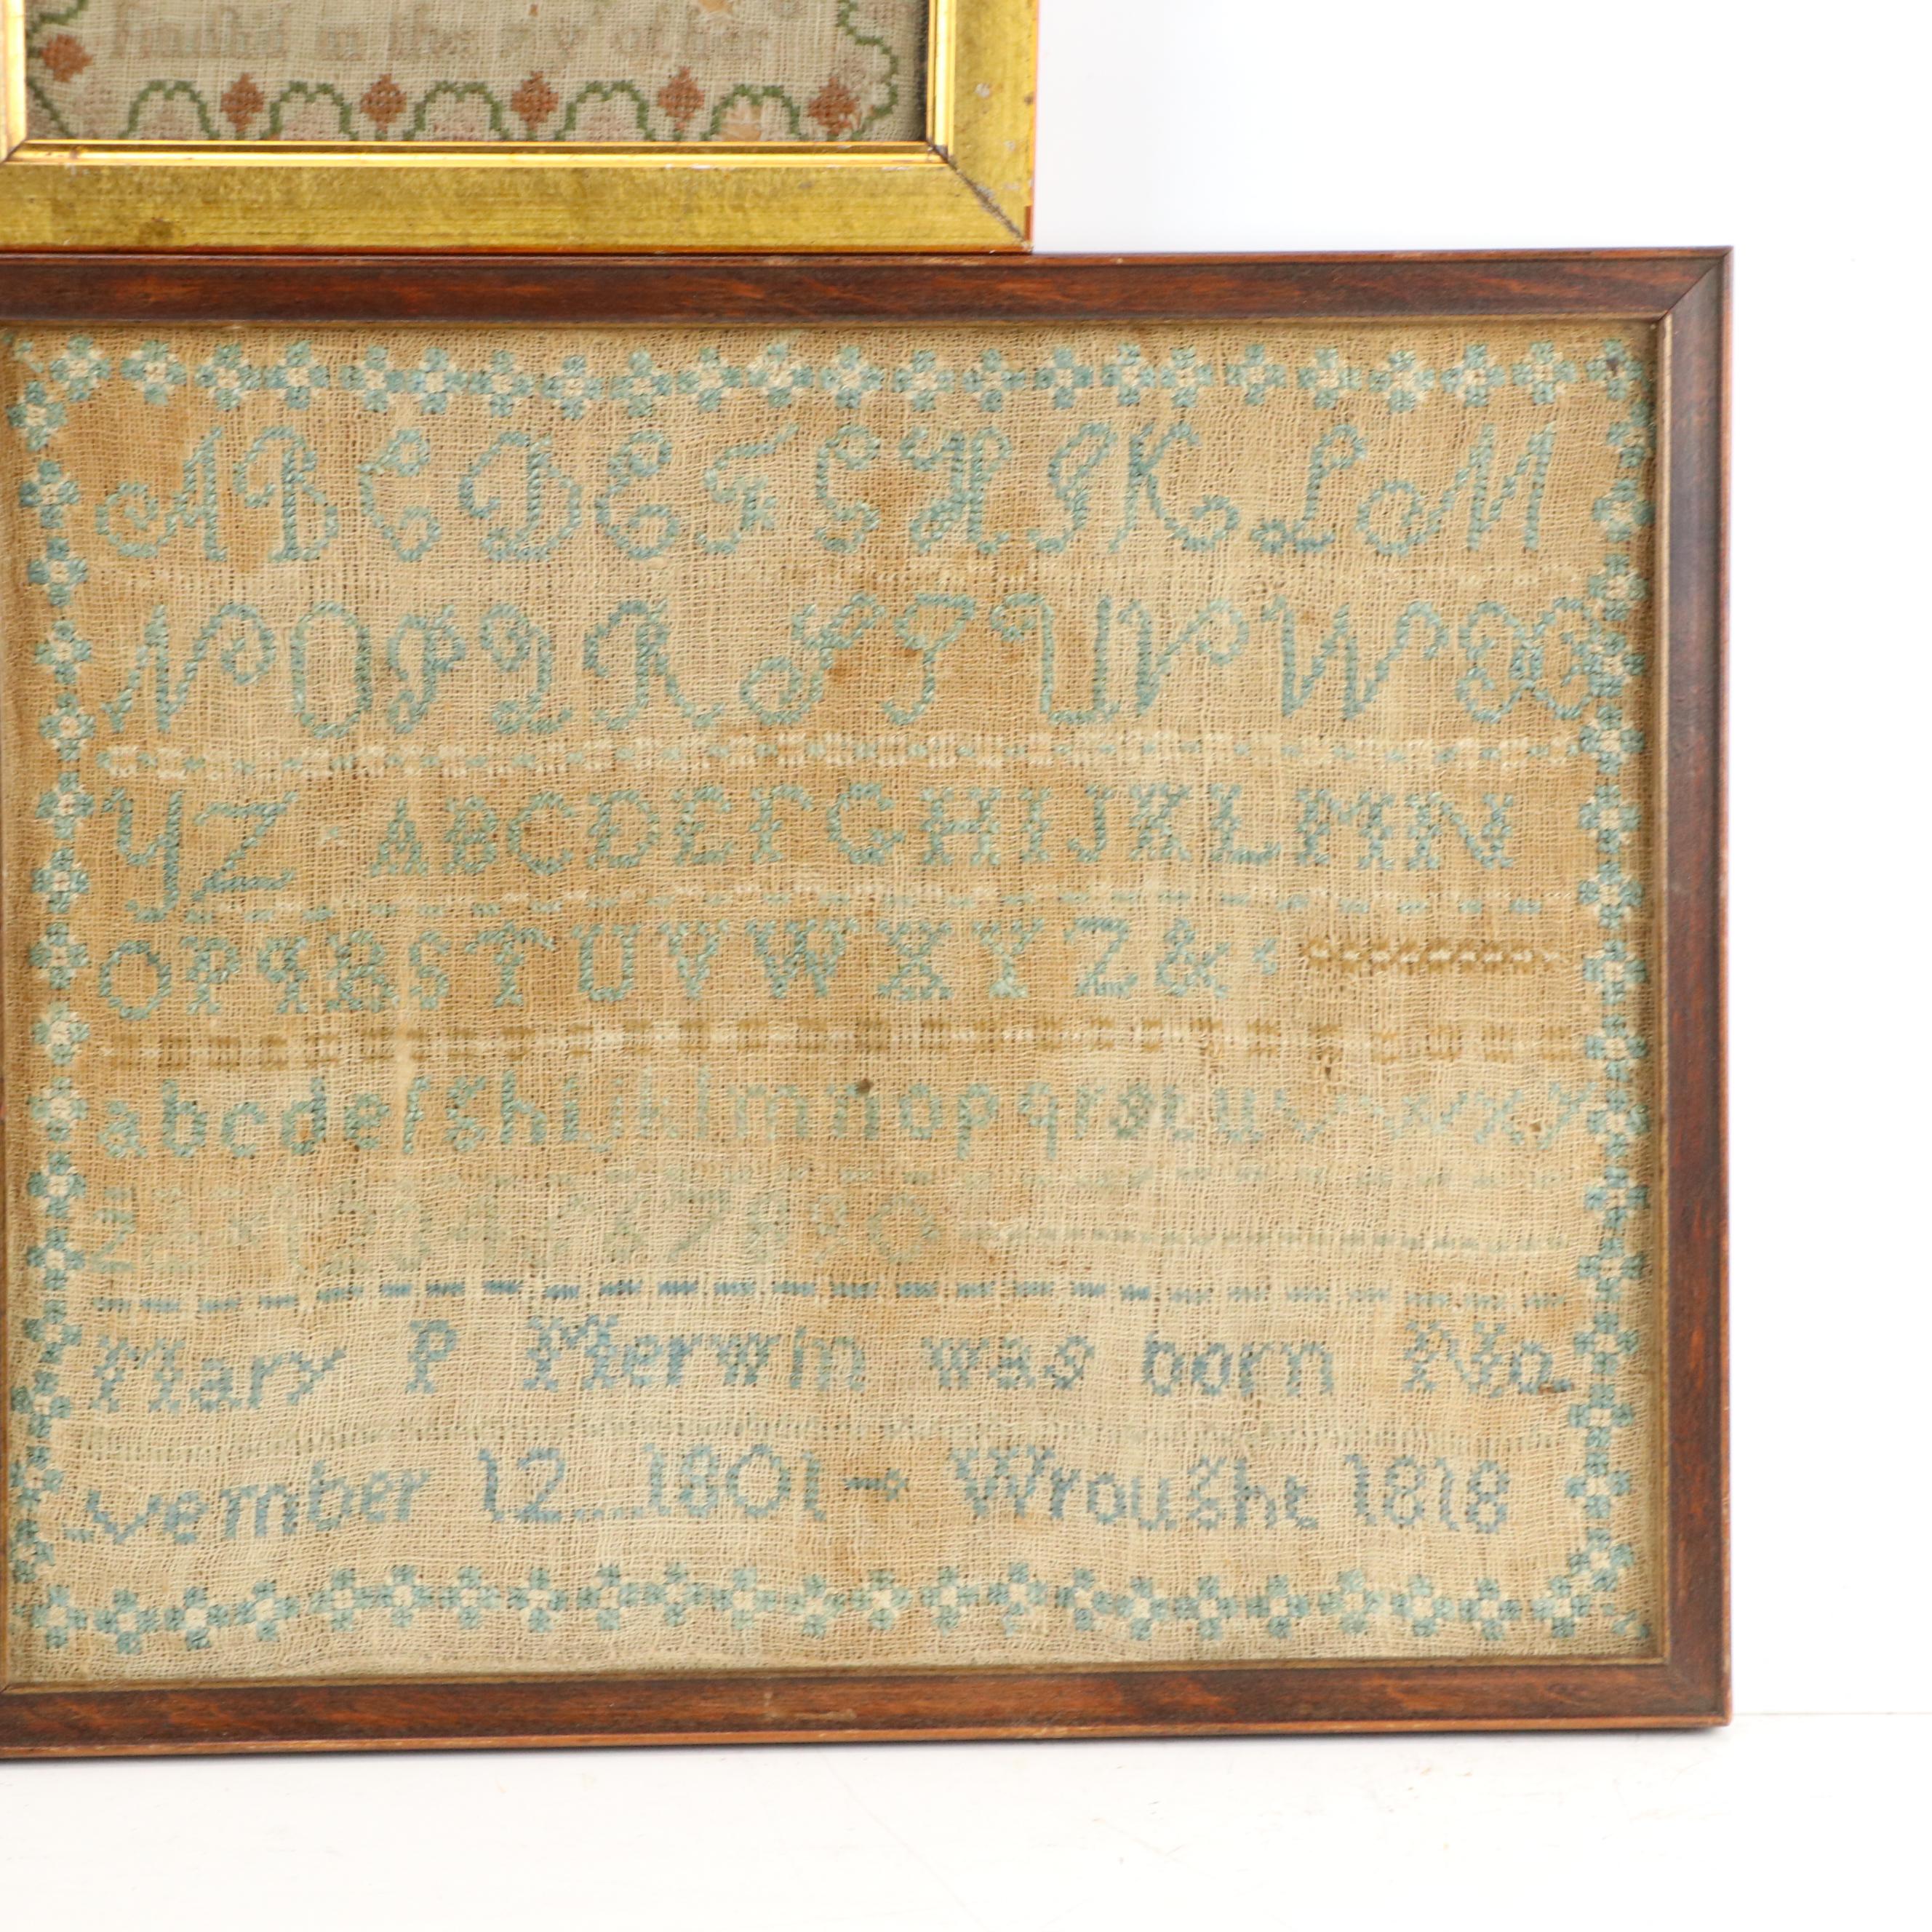 in the of her
A B C D E F G H I K L M
N O P Q R S T U V W X
Y Z A B C D E F G H I J K L M N
O P q R S T U V W X Y Z &
a b c d e f g h i j k l m n o p q r s t u v w x y
z & 1 2 3 4 5 6 7 8 9 0
Mary P Merwin was born No
vember 12 1801 Wrought 1818